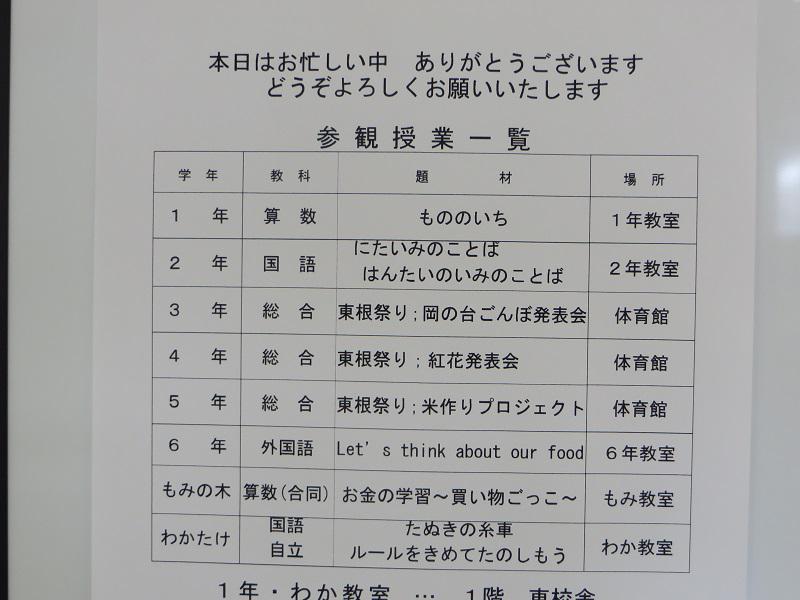 本日はお忙しい中　ありがとうございます
どうぞよろしくお願いいたします
参観授業一覧
学年 教科 題材 場所
１年 算数 もののいち １年教室
２年 国語 にたいみのことば はんたいのいみのことば ２年教室
３年 総合 東根祭り；岡の台ごんぼ発表会 体育館
４年 総合 東根祭り；紅花発表会 体育館
５年 総合 東根祭り；米作りプロジェクト 体育館
６年 外国語 Let’s think about our food ６年教室
もみの木 算数(合同) お金の学習～買い物ごっこ～ もみ教室
わかたけ 国語 自立 たぬきの糸車 ルールをきめてたのしもう わか教室
１年・わか教室 … １階 東校舎